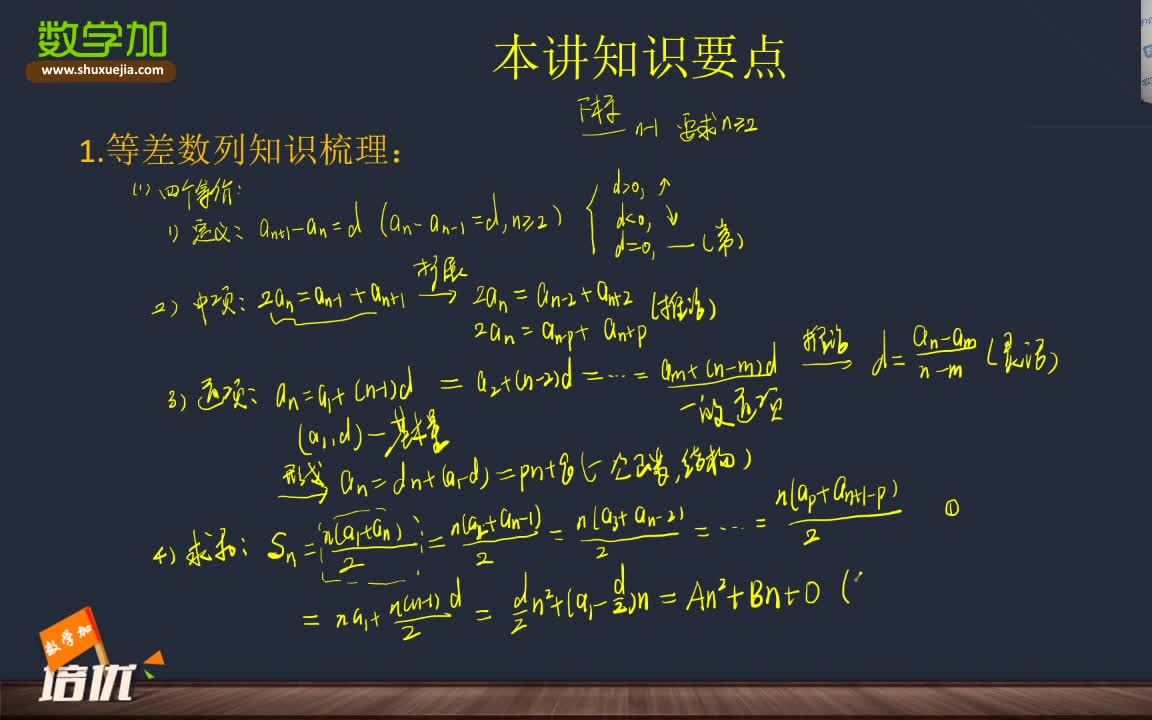 数学加
www.shuxuejia.com
本讲知识要点
下标 n-1 要求 n≥2
1.等差数列知识梳理：
(1) 四个等价:
1) 定义: aₙ₊₁-aₙ=d (aₙ-aₙ₋₁=d, n≥2) { d>0, ↑
d<0, ↓
d=0, — (常)
2) 中项: 2aₙ=aₙ₋₁+aₙ₊₁ 拓展→ 2aₙ=aₙ₋₂+aₙ₊₂ (推论)
2aₙ=aₙ₋ₚ+aₙ₊ₚ
3) 通项: aₙ=a₁+(n-1)d = a₂+(n-2)d = ⋯ = aₘ+(n-m)d 推论→ d=(aₙ-aₘ)/(n-m) (灵活)
(a₁,d)—基本量 一般通项
形式→ aₙ=dn+(a₁-d)=pn+q (一次函数,结构)
4) 求和: Sₙ=n(a₁+aₙ)/2=n(a₂+aₙ₋₁)/2=n(a₃+aₙ₋₂)/2=⋯=n(aₚ+aₙ₊₁₋ₚ)/2 ①
=na₁+n(n-1)/2 d = d/2 n²+(a₁-d/2)n = An²+Bn+0 (
数学加
培优